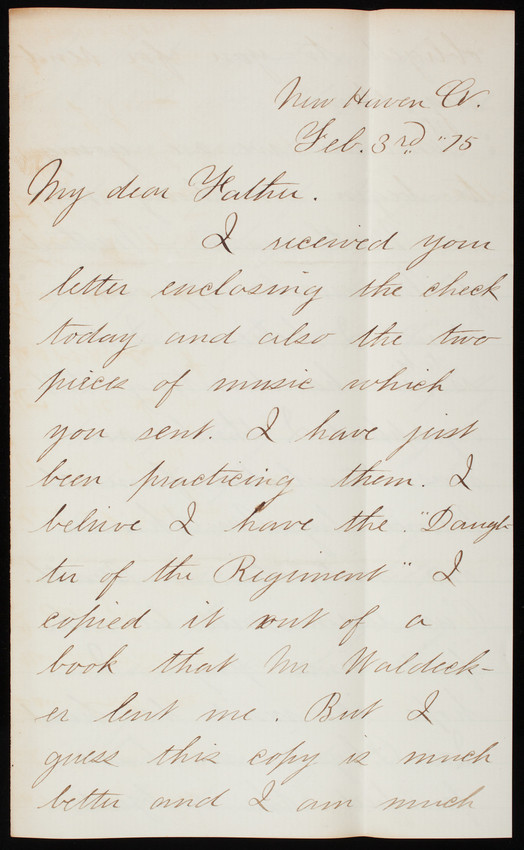 New Haven Ct.
Feb. 3rd "75
My dear Father.
I received your
letter enclosing the check
today and also the two
pieces of music which
you sent. I have just
been practicing them. I
believe I have the "Daugh-
ter of the Regiment" I
copied it out of a
book that Mr Waldeck-
er lent me. But I
guess this copy is much
better and I am much